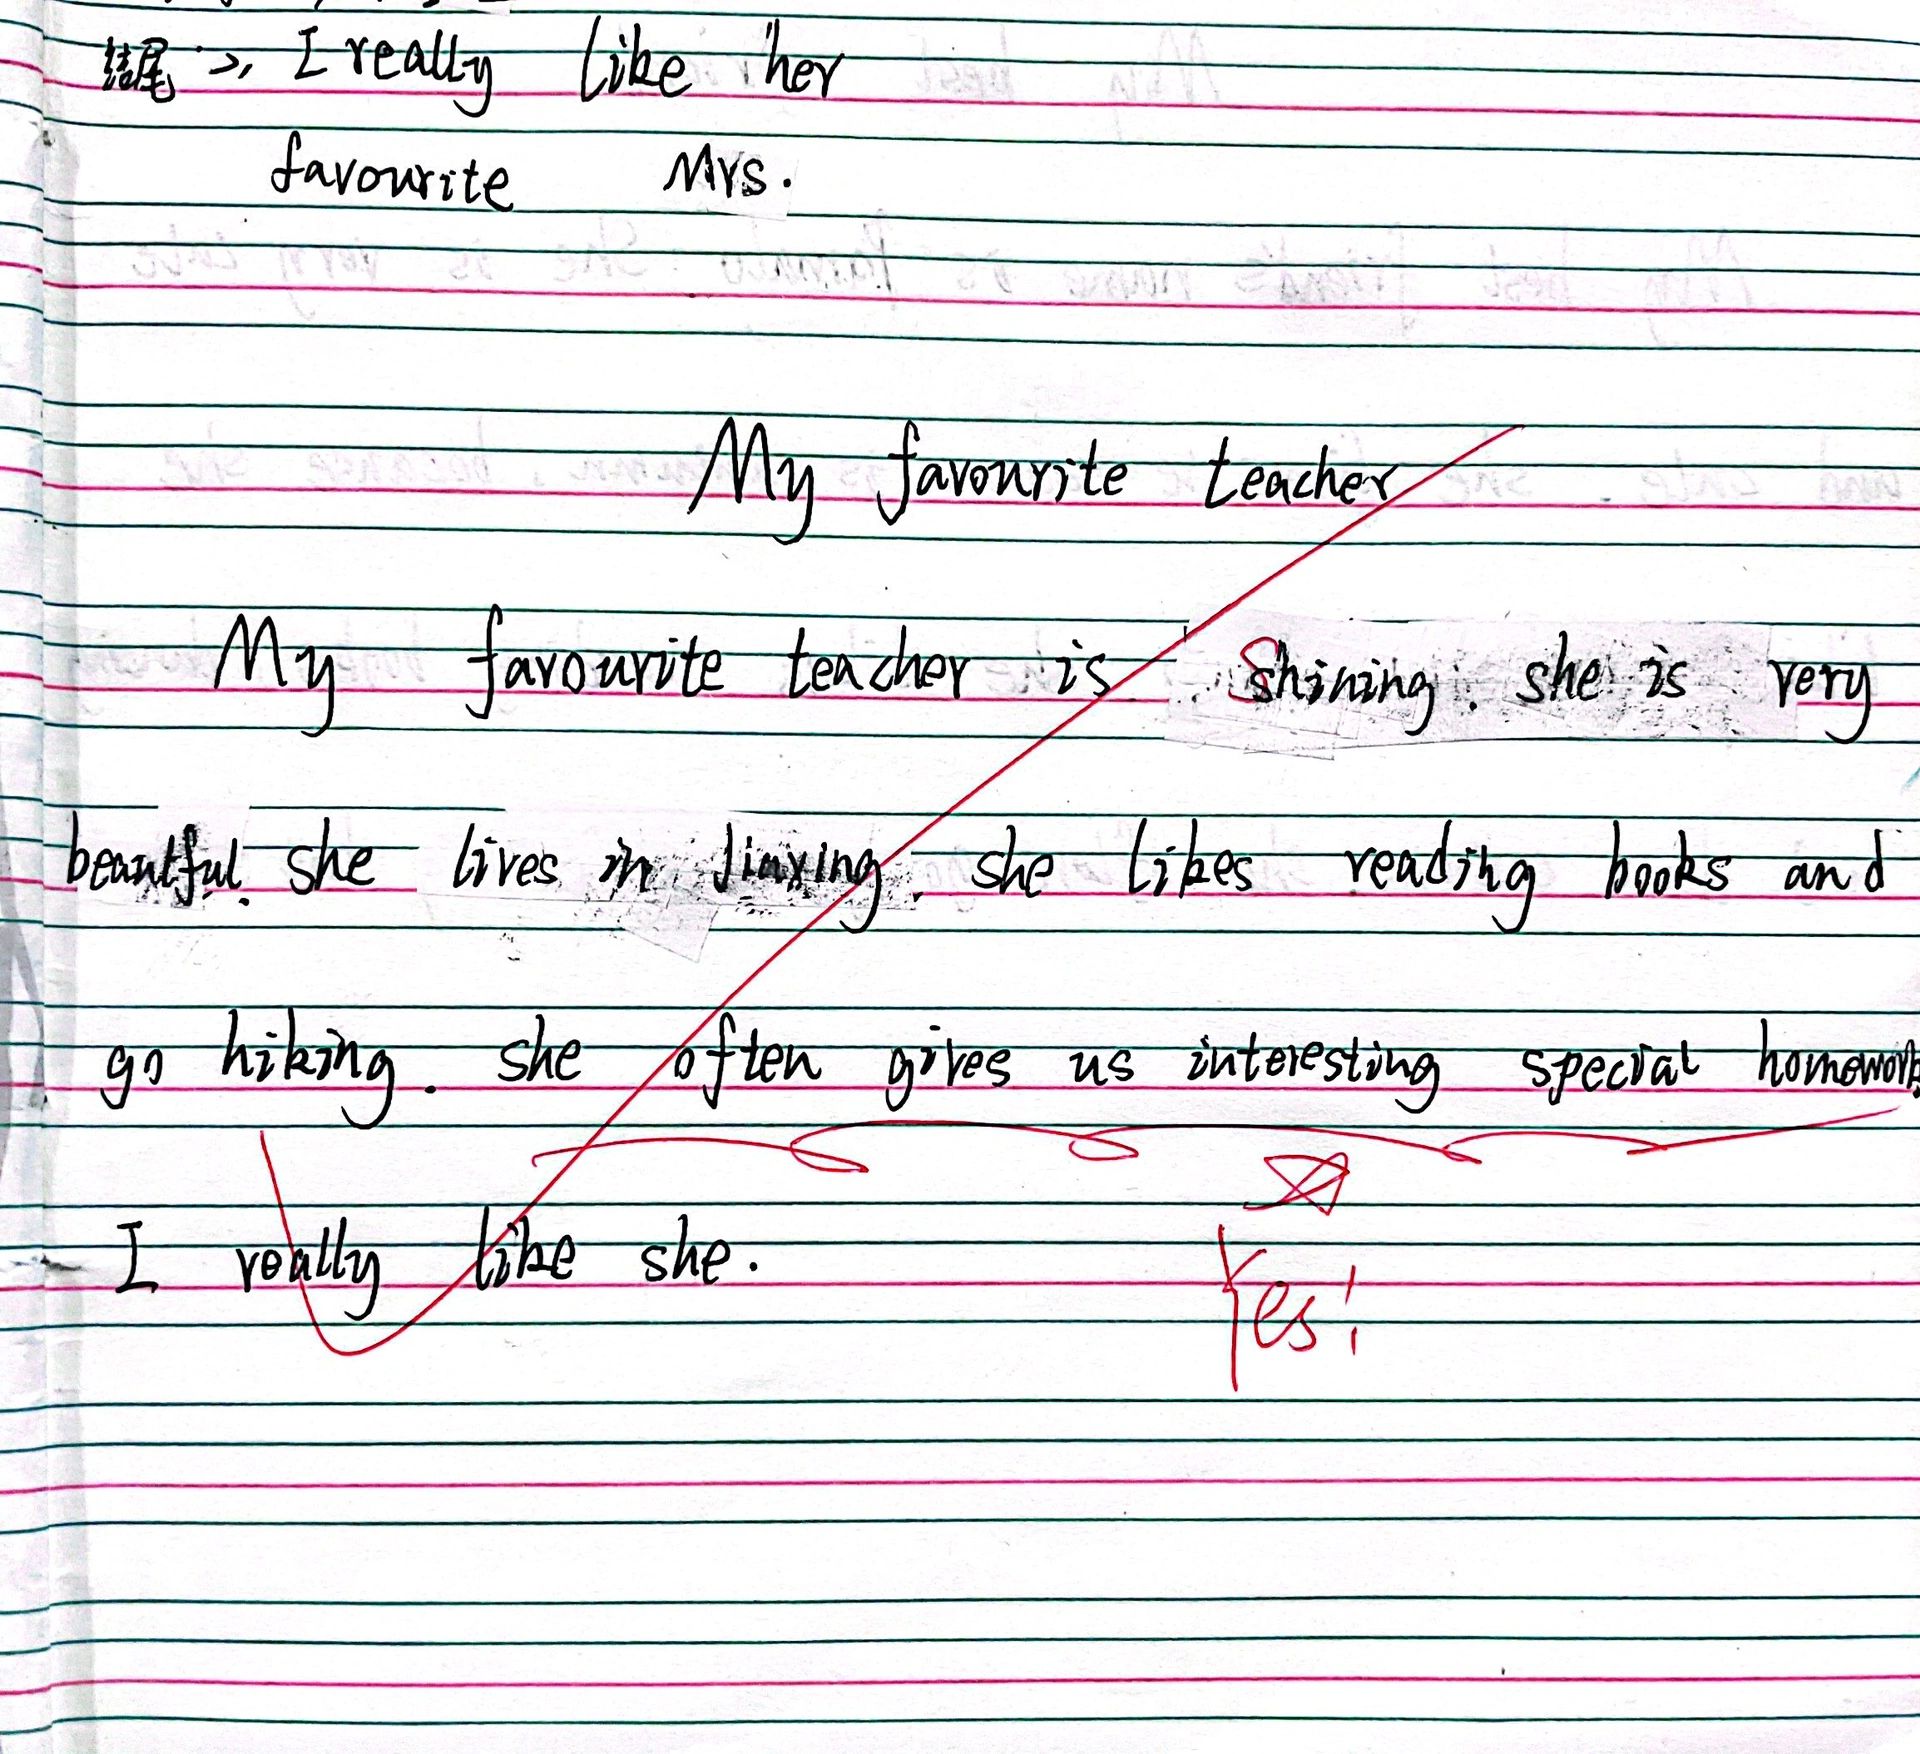 结尾 >, I really like her
favourite Mrs.
My favourite teacher
My favourite teacher is Shining. she is very
beautful. she lives in Jiaxing. she likes reading books and
go hiking. she often gives us interesting special homework
I really like she.
Yes!